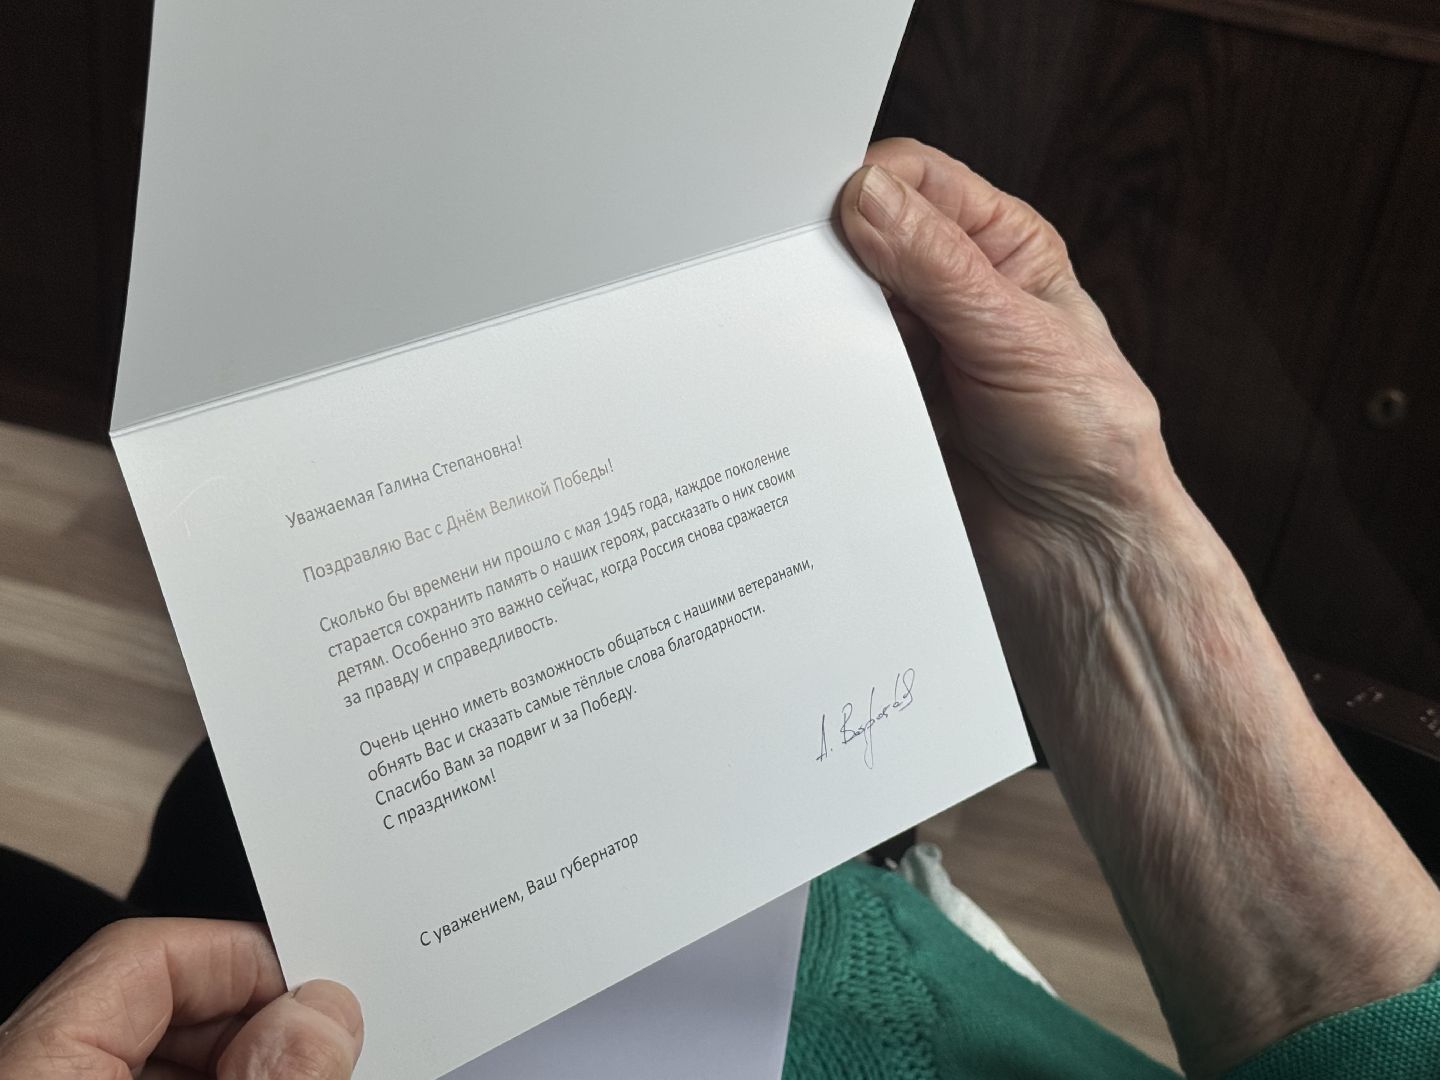 Уважаемая Галина Степановна!
Поздравляю Вас с Днём Великой Победы!
Сколько бы времени ни прошло с мая 1945 года, каждое поколение
старается сохранить память о наших героях, рассказать о них своим
детям. Особенно это важно сейчас, когда Россия снова сражается
за правду и справедливость.
Очень ценно иметь возможность общаться с нашими ветеранами,
обнять Вас и сказать самые тёплые слова благодарности.
Спасибо Вам за подвиг и за Победу.
С праздником!
А. Воробьёв
С уважением, Ваш губернатор